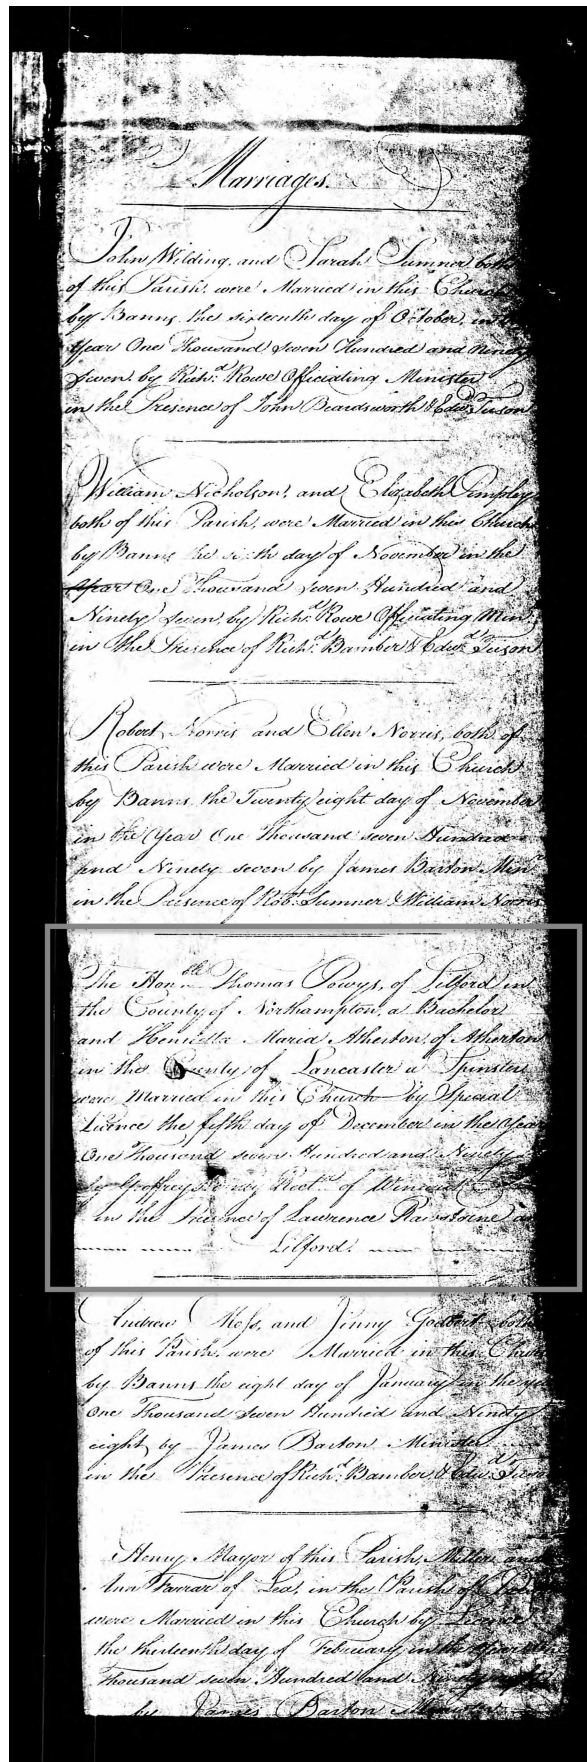 Marriages.
John Wilding, and Sarah Sumner both
of this Parish, were Married in this Church
by Banns the sixteenth day of October, in
Year One Thousand Seven Hundred and Ninety
Seven by Richd. Rowe Officiating Minister
in the Presence of John Beardsworth & Edwd. Tuson
William Nicholson, and Elizabeth
both of this Parish, were Married in this Church
by Banns the sixth day of November in the
Year One Thousand Seven Hundred and
Ninety Seven, by Richd. Rowe Officiating Minr.
in the Presence of Richd. Bamber & Edwd. Tuson
Robert Norris and Ellen Norris, both of
this Parish were Married in this Church
by Banns the Twenty eight day of November
in the Year One Thousand seven Hundred
and Ninety seven by James Barton Minr.
in the Presence of Robt. Sumner & William Norris
The Honble. Thomas Powys, of Lilford in
the County of Northampton, a Bachelor
and Henrietta Maria Atherton, of Atherton
in the County of Lancaster a Spinster
were Married in this Church by Special
Licence the fifth day of December in the Year
One Thousand seven Hundred and Ninety
by Geoffrey Hornby Rectr. of Winwick
in the Presence of Lawrence Rawstorne
Lilford.
Andrew Moss, and Jinny both
of this Parish, were Married in this Church
by Banns the eight day of January in the
One Thousand Seven Hundred and Ninety
eight, by James Barton Minister
in the Presence of Richd. Bamber & Edwd. Tuson
Henry Mayor of this Parish, Miller and
Ann Farrar of Lea, in the Parish of
were Married in this Church by Licence
the thirteenth day of February in the Year
Thousand seven Hundred and Ninety
by James Barton